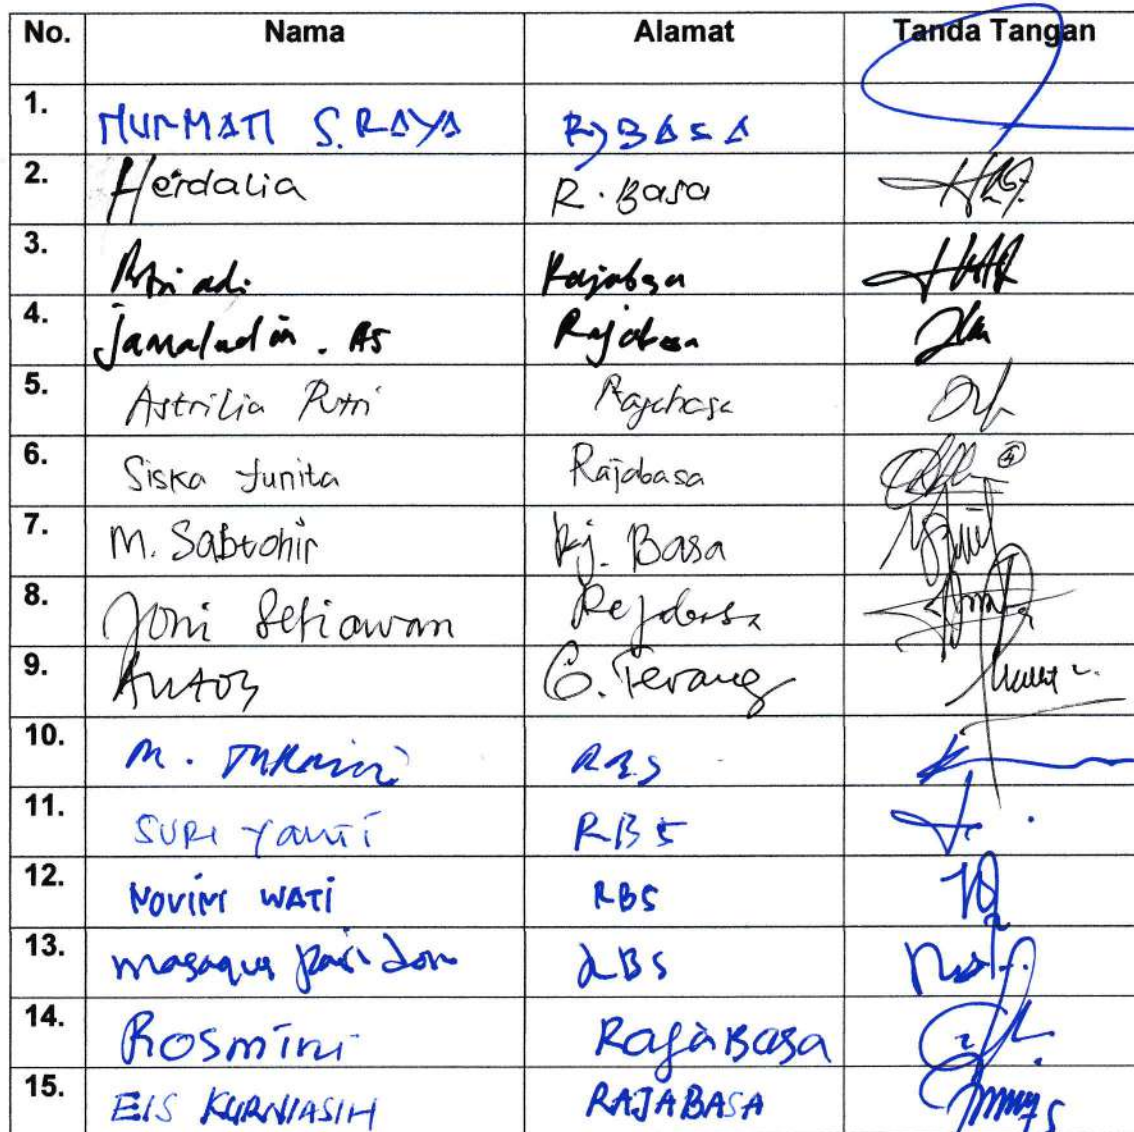 No. Nama Alamat Tanda Tangan
1. NURMATI S. RAYA RJ BASA
2. Herdalia R. Basa
3. Rajabasa
4. Jamaludin. AS Rajabasa
5. Astrilia Putri Rajabasa
6. Siska Junita Rajabasa
7. M. Sabtohir Rj. Basa
8. Joni Setiawan Rajabasa
9. G. Terang
10. M. RBS
11. SURI YANTI RBS
12. NOVIM WATI RBS
13. masagus RBS
14. Rosmini RajaBasa
15. EIS KURNIASIH RAJABASA